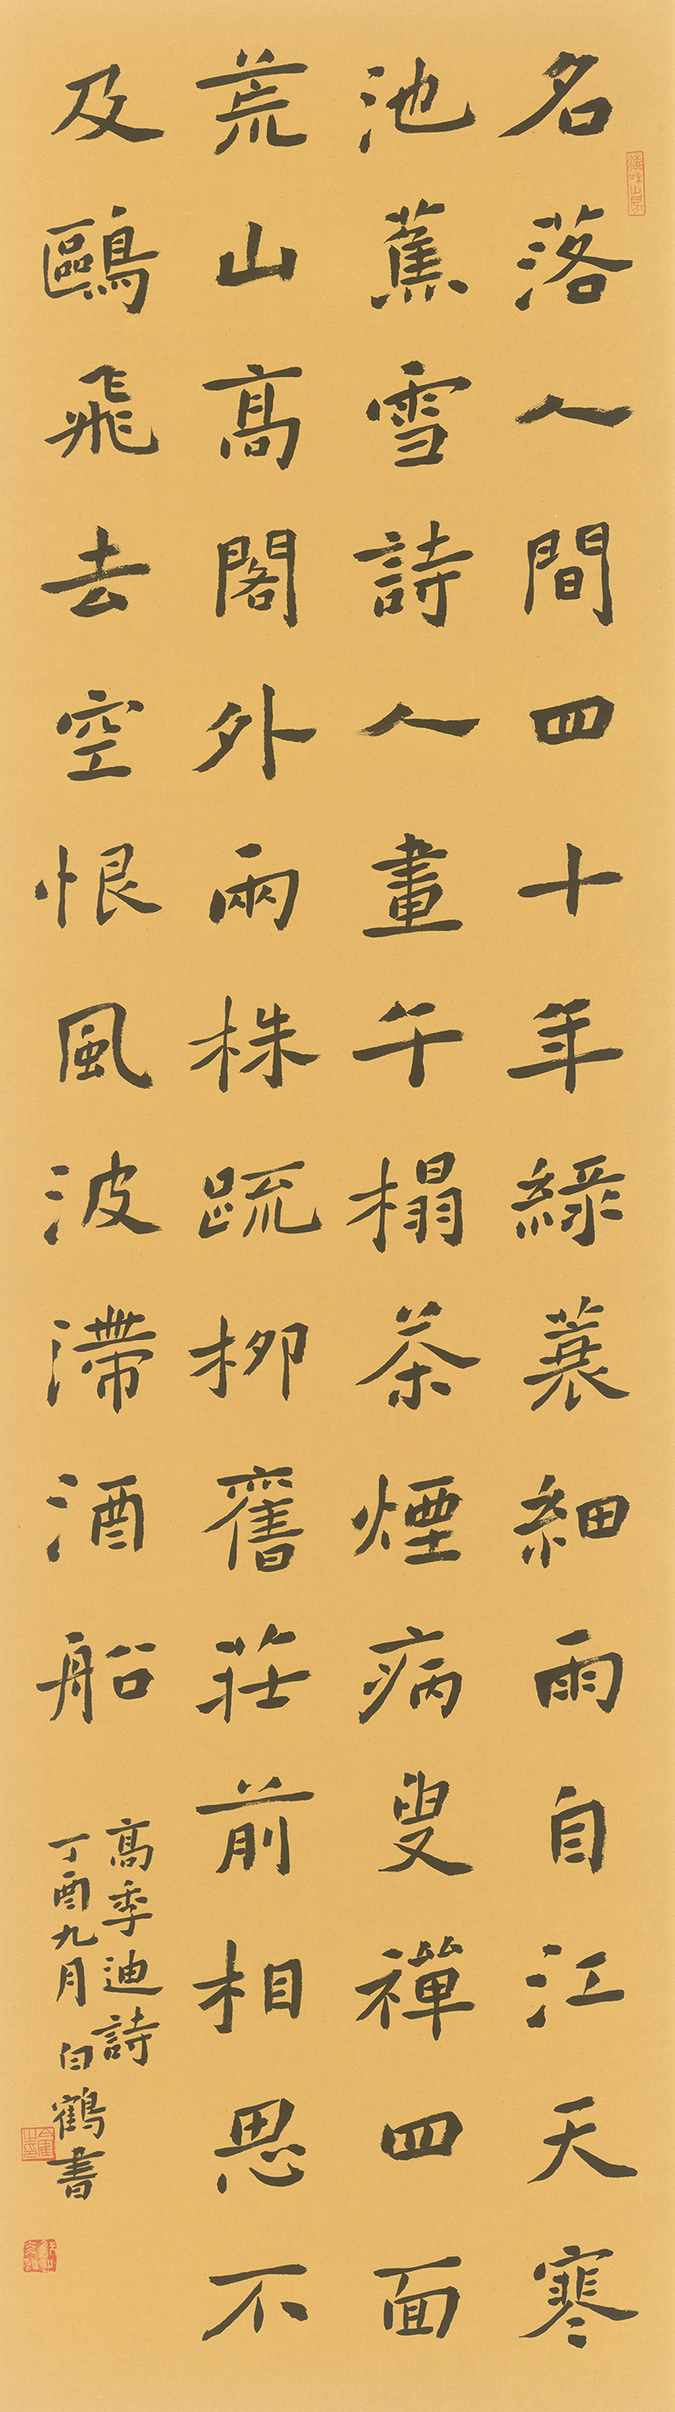 名落人間四十年綠蓑細雨自江天寒
池蕉雪詩人畫午榻茶煙病叟禪四面
荒山高閣外兩株疏柳舊莊前相思不
及鷗飛去空恨風波滯酒船
高季迪詩
丁酉九月白鶴書